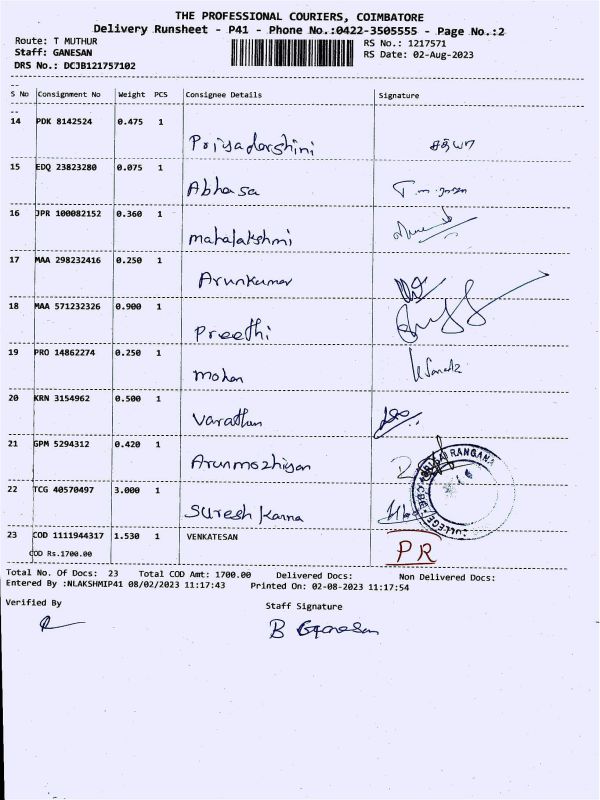 THE PROFESSIONAL COURIERS, COIMBATORE
Delivery Runsheet - P41 - Phone No.:0422-3505555 - Page No.:2
Route: T MUTHUR
RS No.: 1217571
Staff: GANESAN
RS Date: 02-Aug-2023
DRS No.: DCJB121757102
S No Consignment No Weight PCS Consignee Details Signature
14 PDK 8142524 0.475 1
Priyadarshini சத்யா
15 EDQ 23823280 0.075 1
Abhasa
16 JPR 100082152 0.360 1
mahalakshmi
17 MAA 298232416 0.250 1
Arunkumar
18 MAA 571232326 0.900 1
Preethi
19 PRO 14862274 0.250 1
mohan
20 KRN 3154962 0.500 1
Varathan
21 GPM 5294312 0.420 1
Arunmozhiyan
RANGANA
22 TCG 40570497 3.000 1
Suresh Kanna
COLLEGE CBE
23 COD 1111944317 1.530 1 VENKATESAN
PR
COD Rs.1700.00
Total No. Of Docs: 23 Total COD Amt: 1700.00 Delivered Docs: Non Delivered Docs:
Entered By :NLAKSHMIP41 08/02/2023 11:17:43 Printed On: 02-08-2023 11:17:54
Verified By Staff Signature
B Ganesan